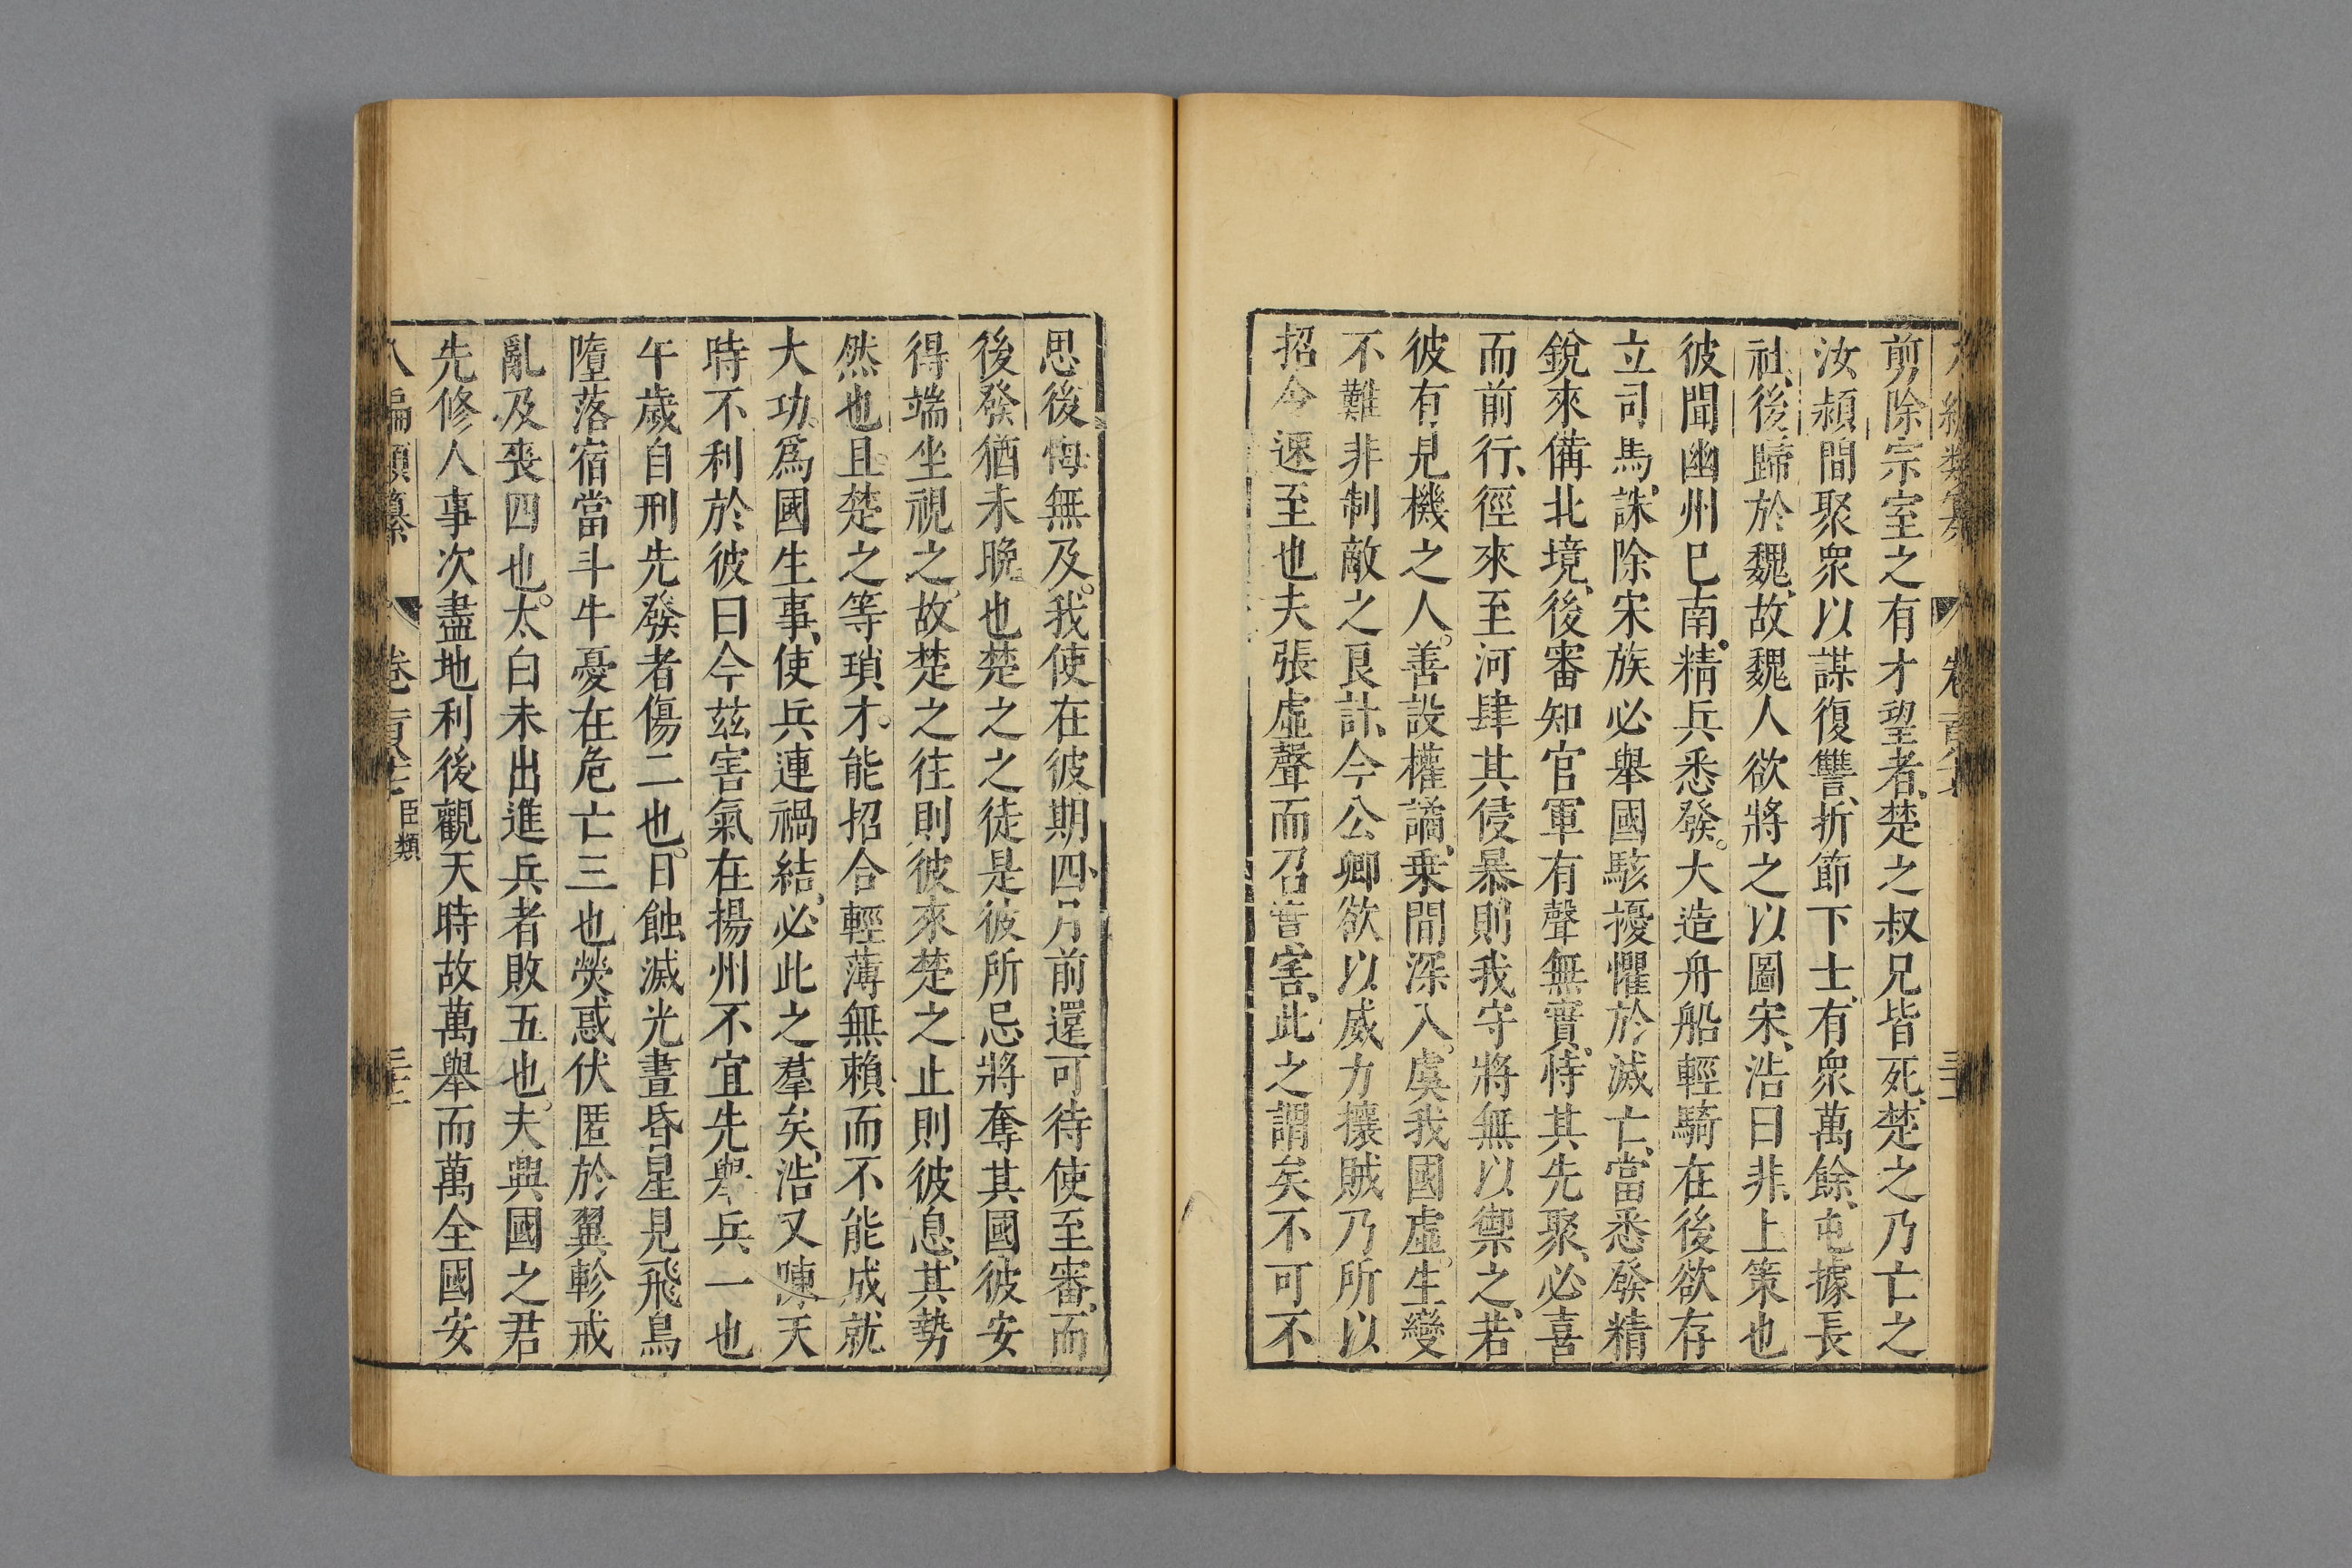 剪除宗室之有才望者、楚之叔兄皆死、楚之乃亡之
汝潁間聚衆以謀復讐、折節下士、有衆萬餘、屯據長
社、後歸於魏、故魏人欲將之以圖宋、浩曰非上策也
彼聞幽州巳南。精兵悉發。大造舟船輕騎在後欲存
立司馬、誅除宋族必舉國駭擾懼於滅亡、當悉發精
銳來備北境、後審知官軍有聲無實、恃其先聚、必喜
而前行、徑來至河肆其侵暴則我守將無以禦之、若
彼有見機之人。善設權譎、乗間深入。虞我國虛。生變
不難非制敵之良計、今公卿欲以威力攘賊乃所以
招令速至也夫張虛聲而召害、此之謂矣不可不
思後悔無及。我使在彼期四月前還可待使至審、而
後發猶未晚也楚之之徒是彼所忌將奪其國彼安
得端坐視之、故楚之徃則彼來楚之止則彼息、其勢
然也且楚之等瑣才。能招合輕薄無賴、而不能成就
大功。爲國生事、使兵連禍結、必此之羣矣、浩又陳天
時不利於彼曰今茲害氣在揚州不宜先舉兵一也
午歲自刑先發者傷二也。日蝕滅光晝昏星見飛鳥
墮落宿當斗牛憂在危亡三也熒惑伏匿於翼軫戒
亂及喪四也。太白未出進兵者敗五也。夫興國之君
先修人事次盡地利後觀天時故萬舉而萬全國安
八編類纂 卷 臣類